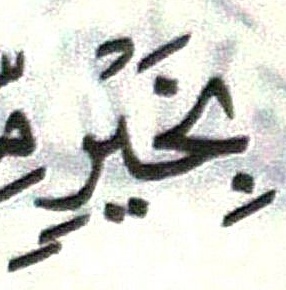 بِخَيْرٍ مِّ